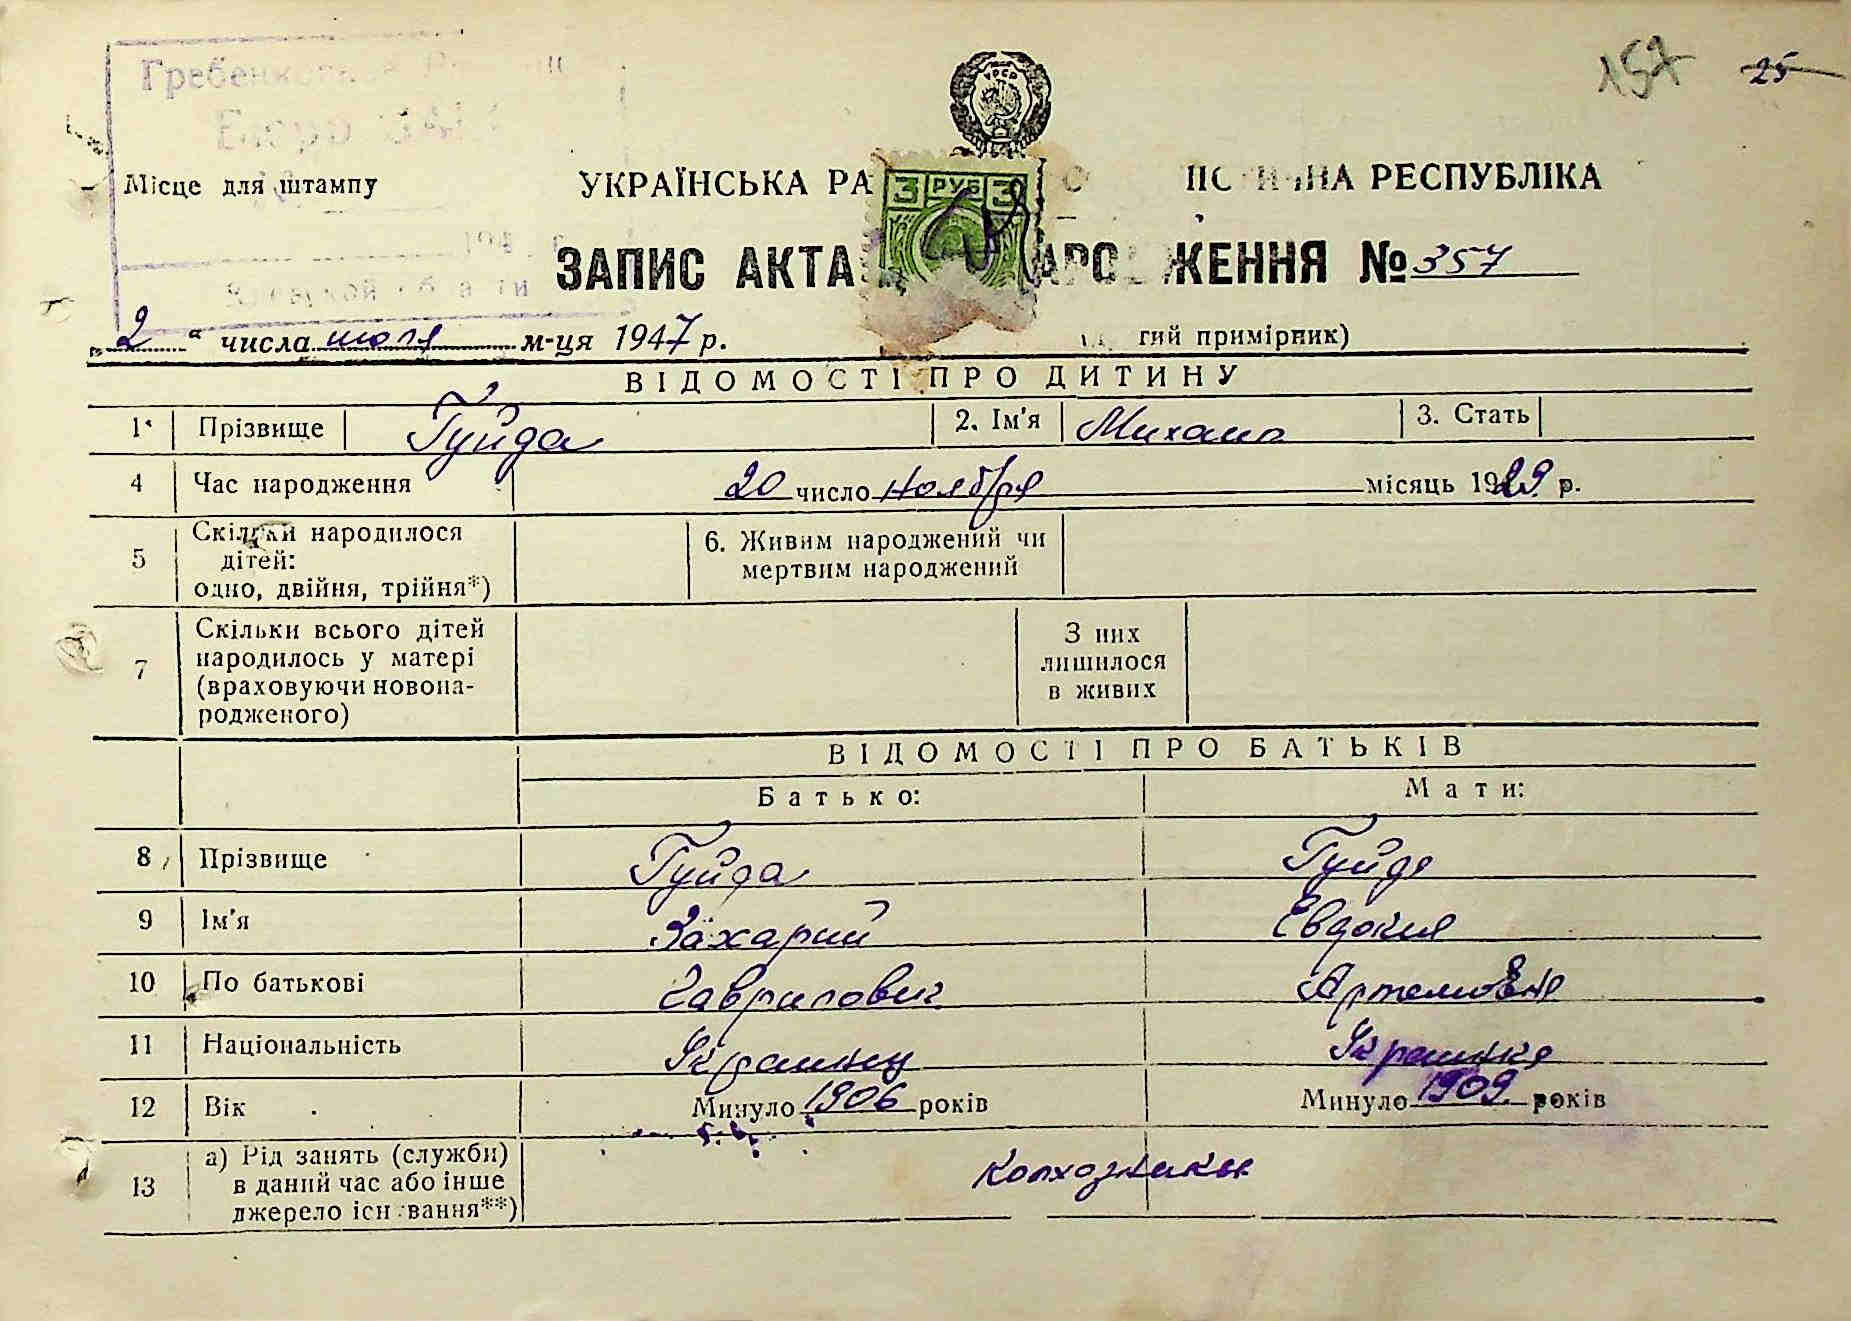 157 25
УРСР
Місце для штампу
УКРАЇНСЬКА РЕСПУБЛІКА
3 РУБ 3
ЗАПИС АКТА ЖЕННЯ № 357
„2“ числа июля м-ця 1947 р. гий примірник)
ВІДОМОСТІ ПРО ДИТИНУ
1 Прізвище Гуйда 2. Ім'я Михаил 3. Стать
4 Час народження 20 число ноября місяць 1929 р.
5 Скільки народилося дітей: одно, двійня, трійня*) 6. Живим народжений чи мертвим народжений
7 Скільки всього дітей народилось у матері (враховуючи новона-родженого) З них лишилося в живих
ВІДОМОСТІ ПРО БАТЬКІВ
Батько: Мати:
8 Прізвище Гуйда Гуйда
9 Ім'я Захарий Евдокия
10 По батькові Гаврилович Артемовна
11 Національність Украинец Украинка
12 Вік Минуло 1906 років Минуло 1909 років
13 а) Рід занять (служби) в даний час або інше джерело існування**) Колхозники